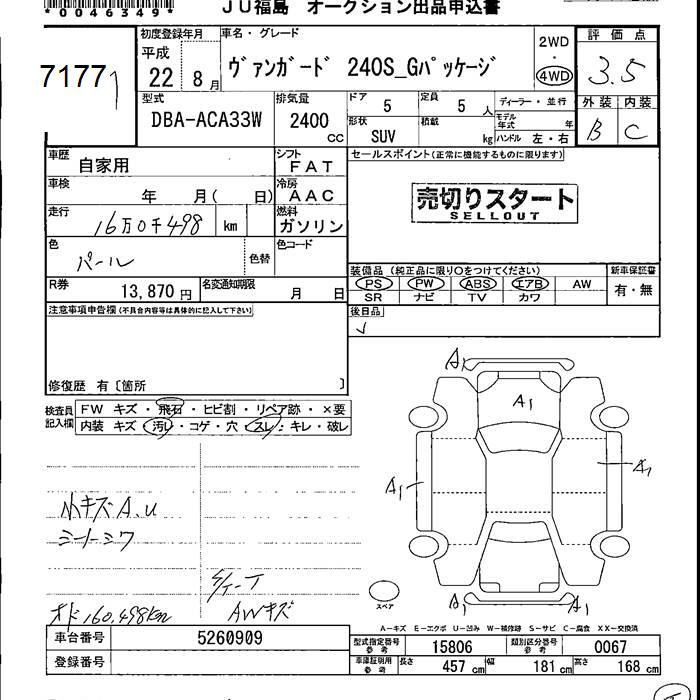 *0046349*
JU福島 オークション出品申込書
71771
初度登録年月
平成
22 8月
車名・グレード
ヴァンガード 240S_Gパッケージ
2WD
・
4WD
評価点
3.5
外装 内装
B C
型式
DBA-ACA33W
排気量
2400
CC
ドア 5
定員 5 人
形状 SUV
積載 kg
ディーラー・並行
モデル年式 年
ハンドル 左・右
車歴
自家用
シフト
FAT
車検
年 月( 日)
冷房
AAC
走行
16万0千498 km
燃料
ガソリン
色
パール
色替
色コード
セールスポイント(正常に機能するものに限ります)
売切りスタート
SELLOUT
R券
13,870円
名変通知期限
月 日
装備品(純正品に限り○をつけてください)
PS PW ABS エアB AW
SR ナビ TV カワ
新車保証書
有・無
後日品
注意事項申告欄(不具合内容等は具体的に記入して下さい)
修復歴 有〔箇所 〕
検査員記入欄
FW キズ・飛石・ヒビ割・リペア跡・×要
内装 キズ・汚レ・コゲ・穴・スレ・キレ・破レ
小キズA.U
シートシワ
AWキズ
オド160,498km
A1
A1
A1
A1
A1
A1
スペア
A-キズ E-エクボ U-凹み W-補修跡 S-サビ C-腐食 XX-交換済
車台番号 5260909
登録番号
型式指定番号 参考 15806
類別区分番号 参考 0067
車庫証明用 参考 長さ 457cm 幅 181cm 高さ 168cm